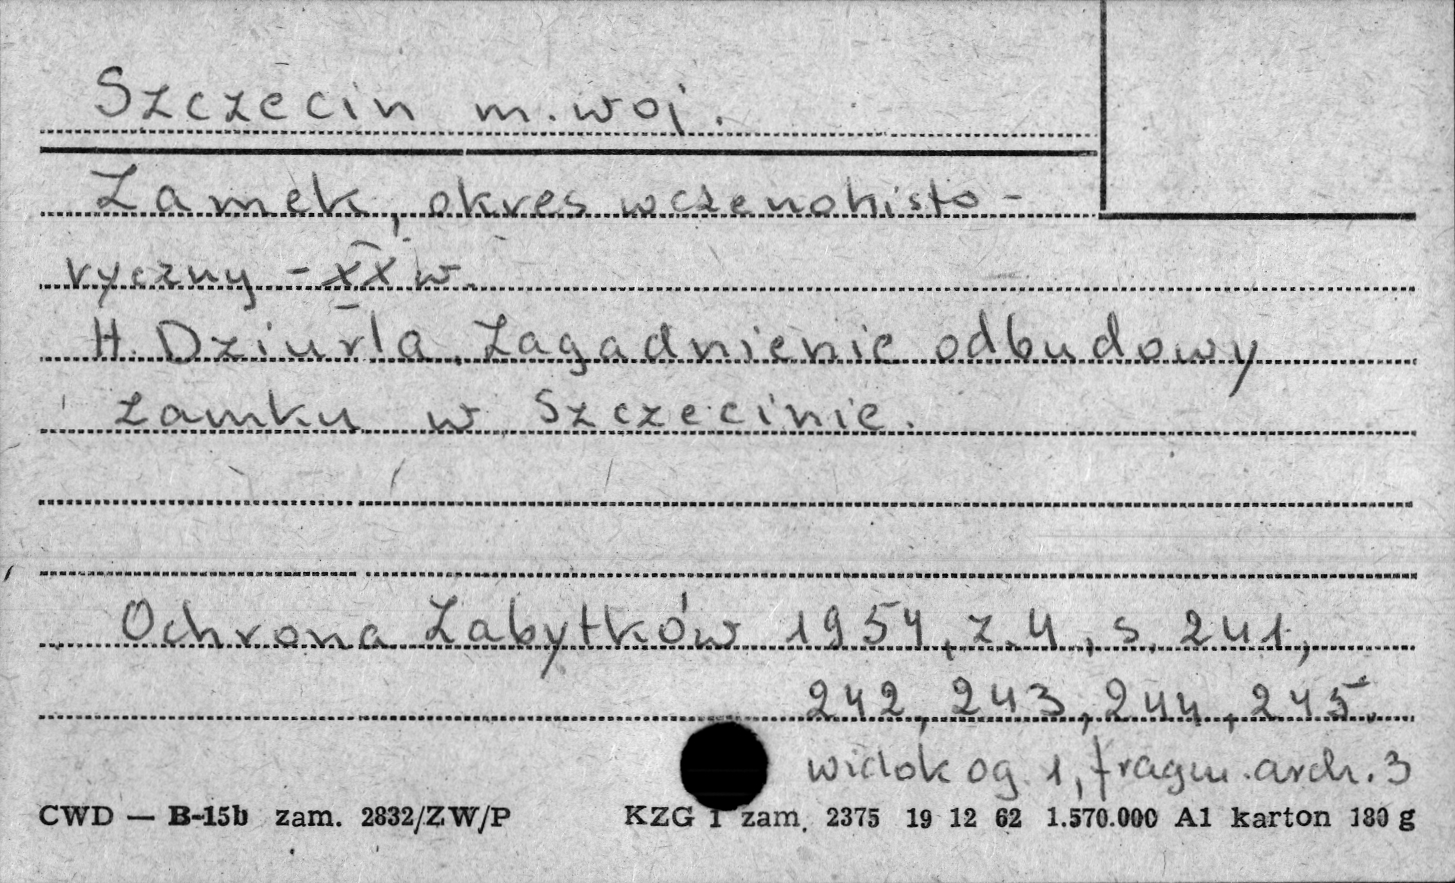 Szczecin m. woj.
Zamek, okres wczenohisto-
ryczny - XX w.
H. Dziurla, Zagadnienie odbudowy
zamku w Szczecinie.
Ochrona Zabytków 1954, z. 4, s. 241,
242, 243, 244, 245.
widok og. 1, fragm. arch. 3
CWD — B-15b zam. 2832/ZW/P KZG 1 zam. 2375 19 12 62 1.570.000 A1 karton 180 g